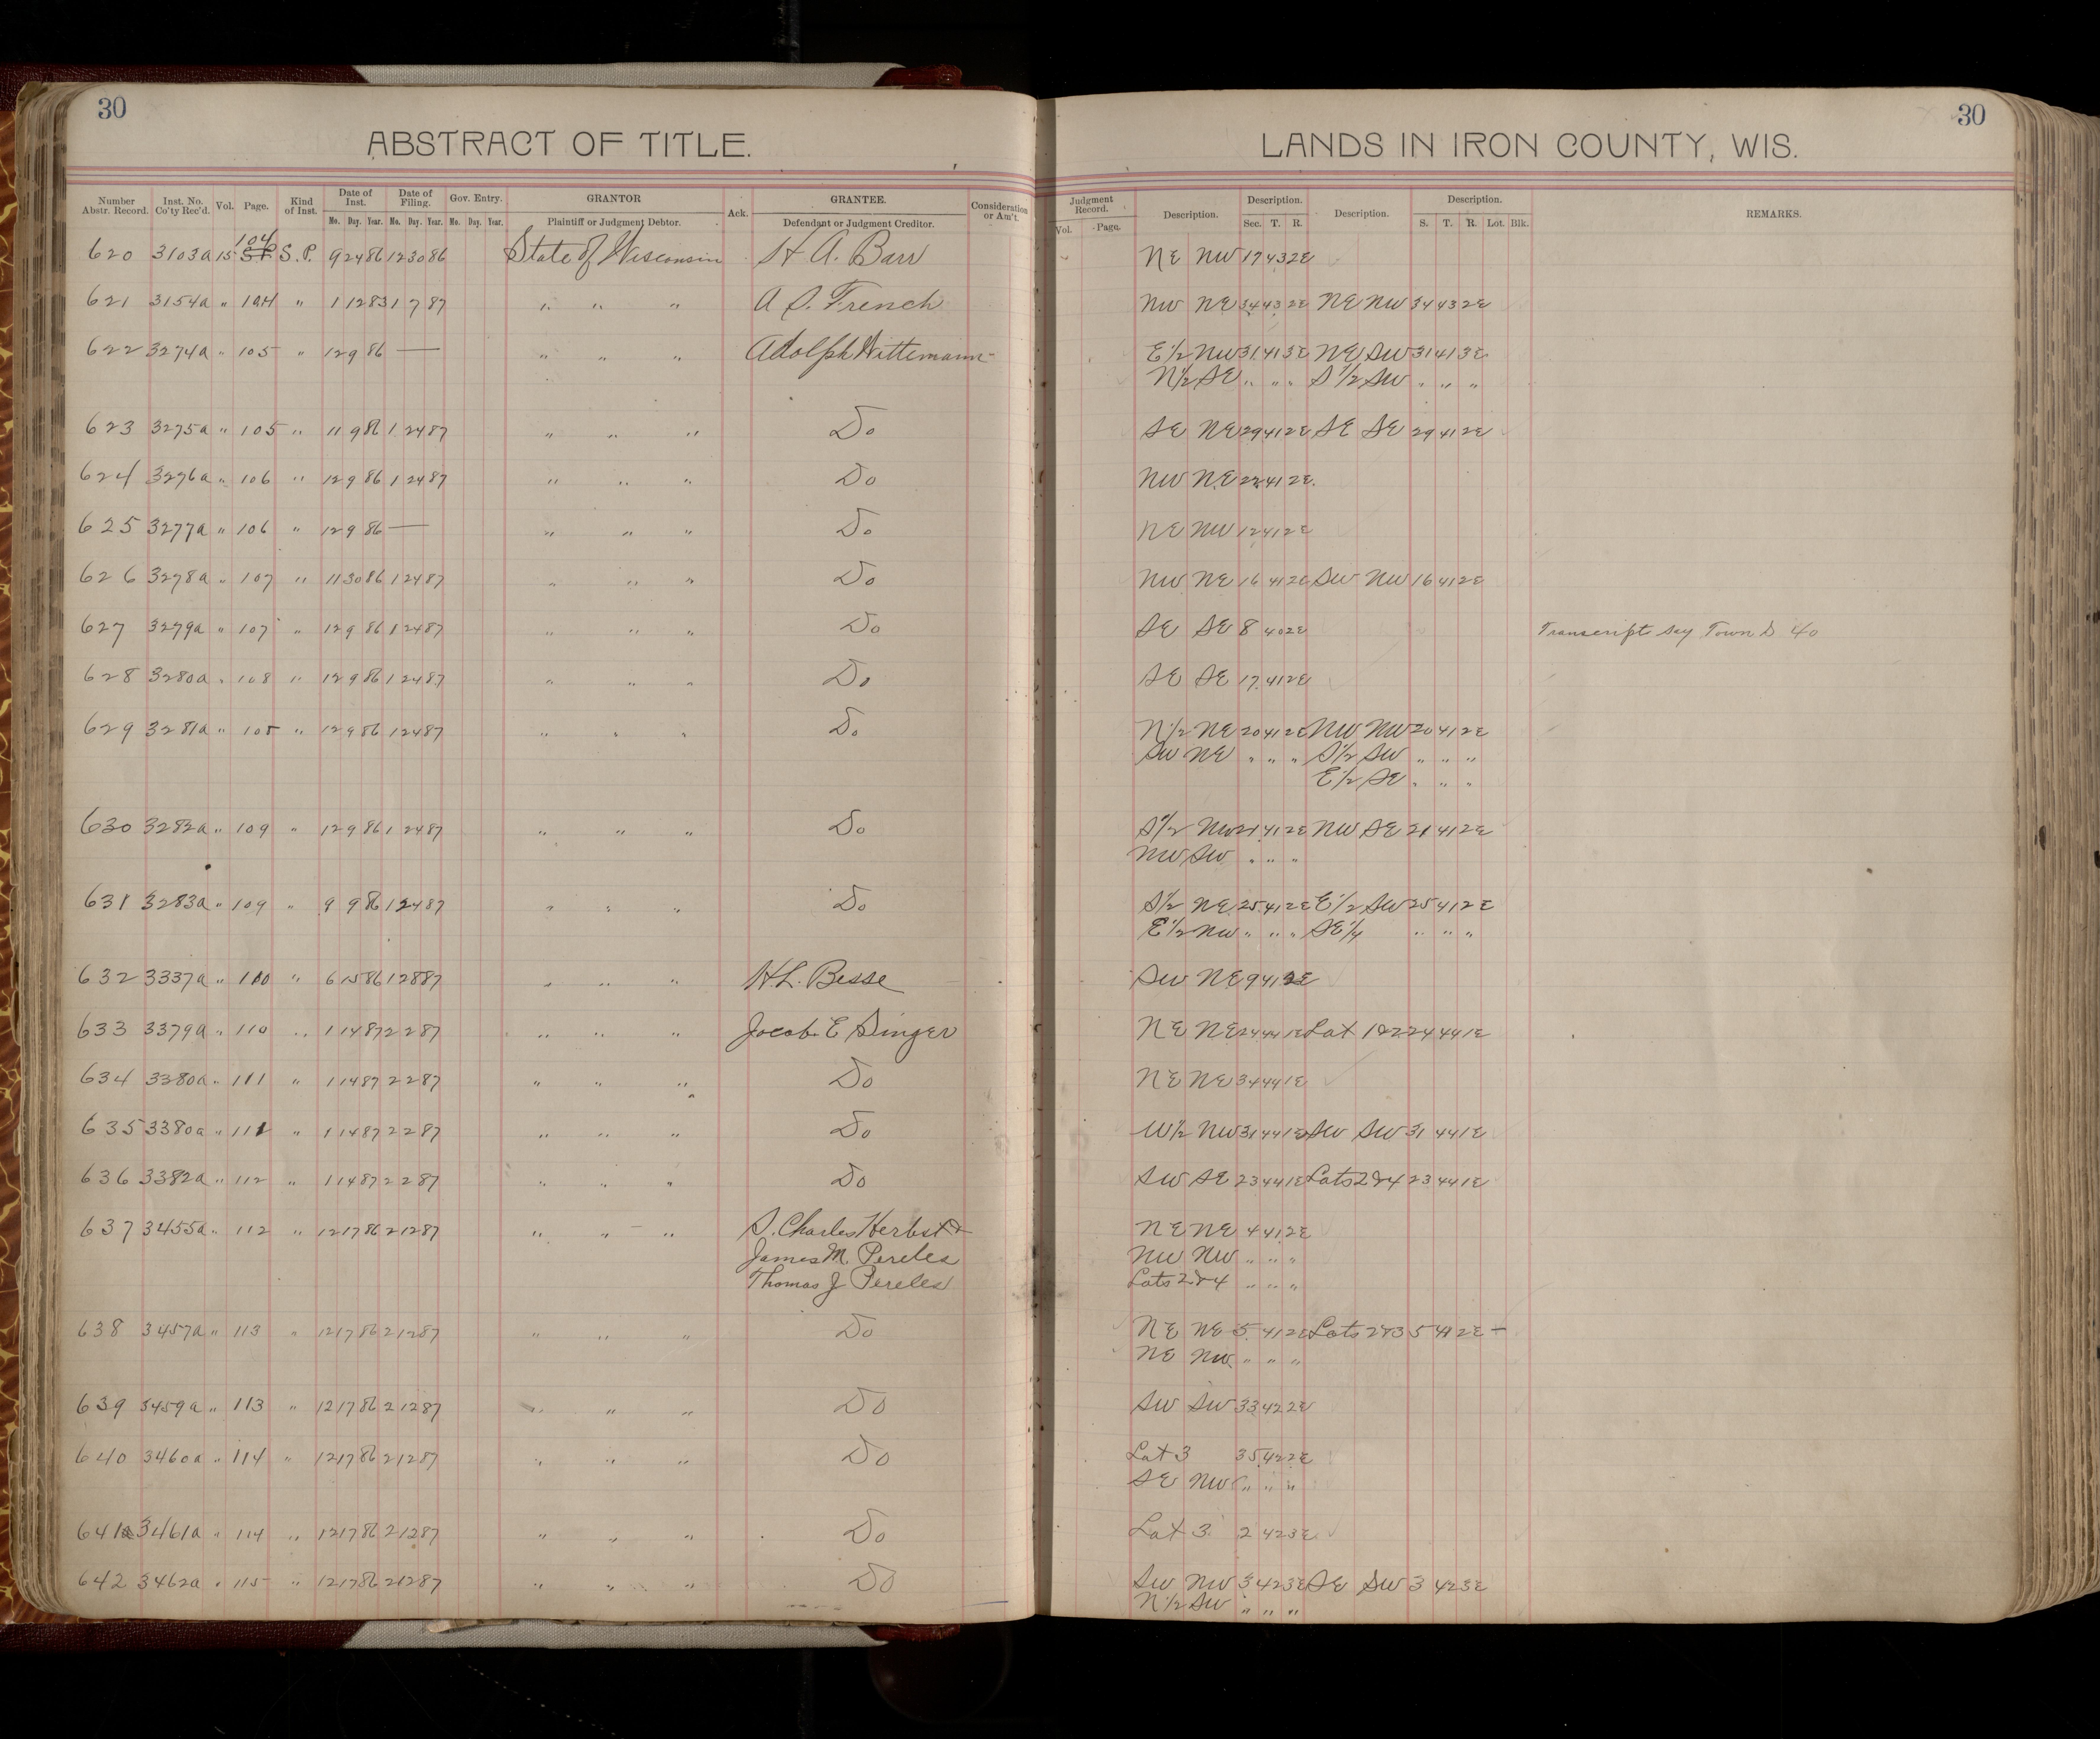 30
ABSTRACT OF TITLE.
LANDS IN IRON COUNTY, WIS.
30
Number Abstr. Record. Inst. No. Co'ty Rec'd. Vol. Page. Kind of Inst. Date of Inst. Mo. Day. Year. Date of Filing. Mo. Day. Year. Gov. Entry. Mo. Day. Year. GRANTOR Plaintiff or Judgment Debtor. Ack. GRANTEE. Defendant or Judgment Creditor. Consideration or Am't. Judgment Record. Vol. Page. Description. Description. Sec. T. R. Description. Description. S. T. R. Lot. Blk. REMARKS.
620 3103a 15 104 S. P. 9 24 86 12 30 86 State of Wisconsin H. A. Barr NE NW 17 43 2E
621 3154a " 104 " 1 12 83 1 7 87 " " " A. S. French NW NE 34 43 2E NE NW 34 43 2E
622 3274a " 105 " 12 9 86 — " " " Adolph Wittemann E½ NW 31 41 3E NE SW 31 41 3E
N½ SE " " " S½ SW " " "
623 3275a " 105 " 11 9 86 1 24 87 " " " Do SE NE 29 41 2E SE SE 29 41 2E
624 3276a " 106 " 12 9 86 1 24 87 " " " Do NW NE 22 41 2E
625 3277a " 106 " 12 9 86 — " " " Do NE NW 12 41 2E
626 3278a " 107 " 11 30 86 1 24 87 " " " Do NW NE 16 41 2E SW NW 16 41 2E
627 3279a " 107 " 12 9 86 1 24 87 " " " Do SE SE 8 40 2E Transcript say Town S 40
628 3280a " 108 " 12 9 86 1 24 87 " " " Do SE SE 17 41 2E
629 3281a " 108 " 12 9 86 1 24 87 " " " Do N½ NE 20 41 2E NW NW 20 41 2E
SW NE " " " S½ SW " " "
E½ SE " " "
630 3282a " 109 " 12 9 86 1 24 87 " " " Do S½ NW 21 41 2E NW SE 21 41 2E
NW SW " " "
631 3283a " 109 " 9 9 86 1 24 87 " " " Do S½ NE 25 41 2E E½ SW 25 41 2E
E½ NW " " " SE¼ " " "
632 3337a " 110 " 6 15 86 1 28 87 " " " H. L. Besse SW NE 9 41 2E
633 3379a " 110 " 1 14 87 2 2 87 " " " Jacob E Singer NE NE 24 44 1E Lot 1&2 24 44 1E
634 3380a " 111 " 1 14 87 2 2 87 " " " Do NE NE 34 44 1E
635 3380a " 111 " 1 14 87 2 2 87 " " " Do W½ NW 31 44 1E SW SW 31 44 1E
636 3382a " 112 " 1 14 87 2 2 87 " " " Do SW SE 23 44 1E Lots 2&4 23 44 1E
637 3455a " 112 " 12 17 86 2 12 87 " " " S. Charles Herbst & NE NE 4 41 2E
James M. Pereles NW NW " " "
Thomas J Pereles Lots 2&4 " " "
638 3457a " 113 " 12 17 86 2 12 87 " " " Do NE NE 5 41 2E Lots 2&3 5 41 2E –
NE NW " " "
639 3459a " 113 " 12 17 86 2 12 87 " " " Do SW SW 33 42 2E
640 3460a " 114 " 12 17 86 2 12 87 " " " Do Lot 3 35 42 2E
SE NW " " "
641 3461a " 114 " 12 17 86 2 12 87 " " " Do Lot 3 2 42 3E
642 3462a " 115 " 12 17 86 2 12 87 " " " Do SW NW 3 42 3E SE SW 3 42 3E
N½ SW " " "